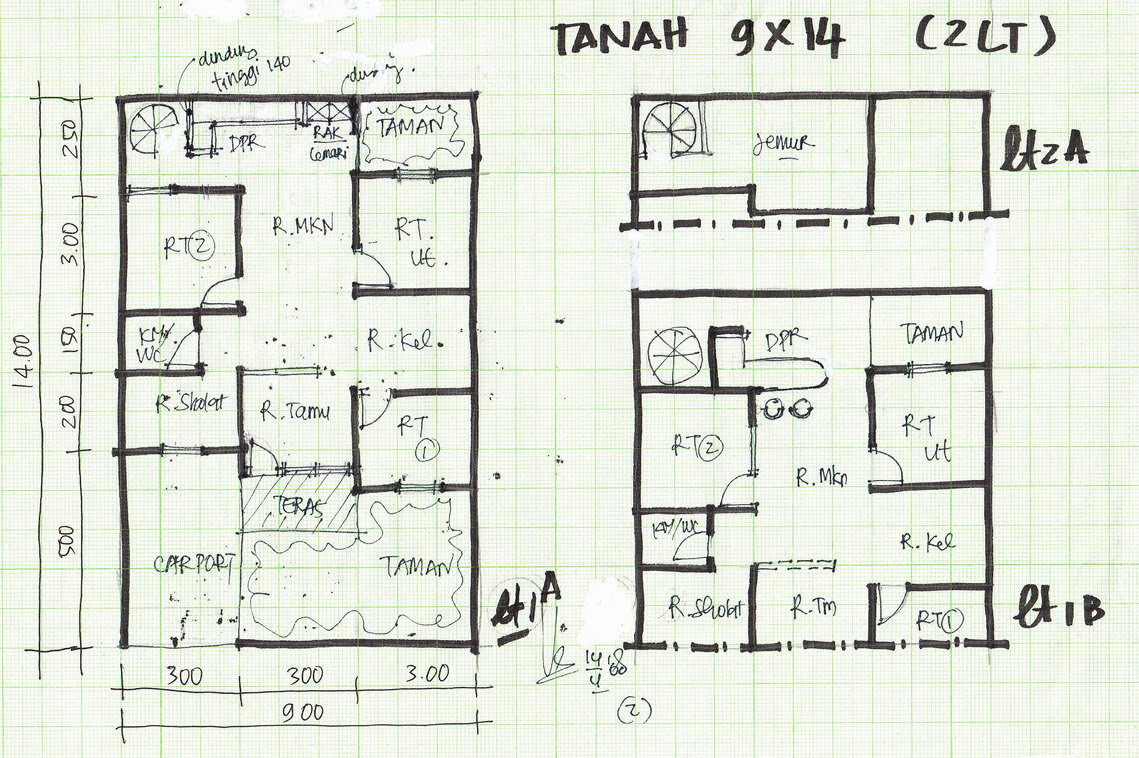 TANAH 9X14 (2LT)
dinding
tinggi 140
250
3.00
150
200
500
14.00
DPR
RAK
Lemari
TAMAN
RT 2
R.MKN
RT.
Ut.
KM/
WC
R.Kel.
R.Sholat
R.Tamu
RT
1
TERAS
CARPORT
TAMAN
lt1 A
300
300
3.00
900
Jemur
lt 2 A
DPR
TAMAN
RT 2
R.Mkn
RT
Ut
KM/WC
R.Kel
R.Sholat
R.Tm
RT 1
lt 1 B
14
4
(2)